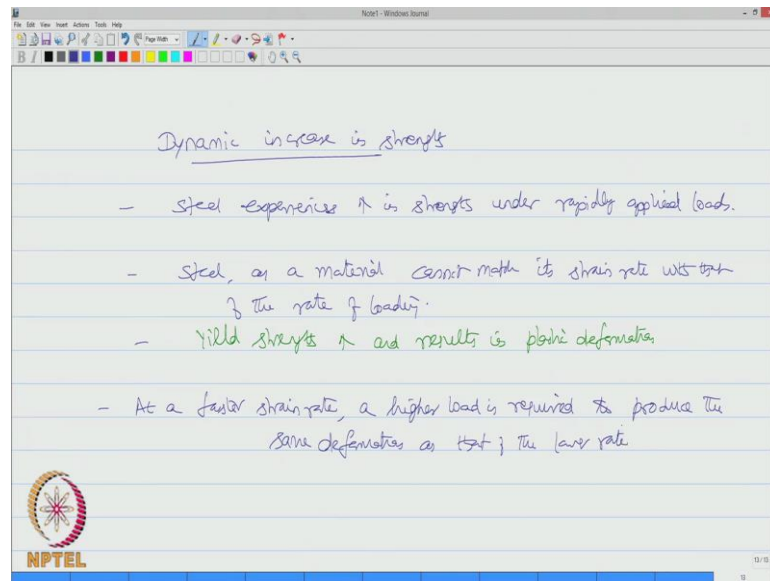 Note1 - Windows Journal
File Edit View Insert Actions Tools Help
Page Width
B I
Dynamic increase in strength
- Steel experiences ↑ in strength under rapidly applied loads.
- Steel, as a material cannot match its strain rate with that
of the rate of loading.
- Yield strength ↑ and results in plastic deformation
- At a faster strain rate, a higher load is required to produce the
same deformation as that of the lower rate
NPTEL
13/13
13